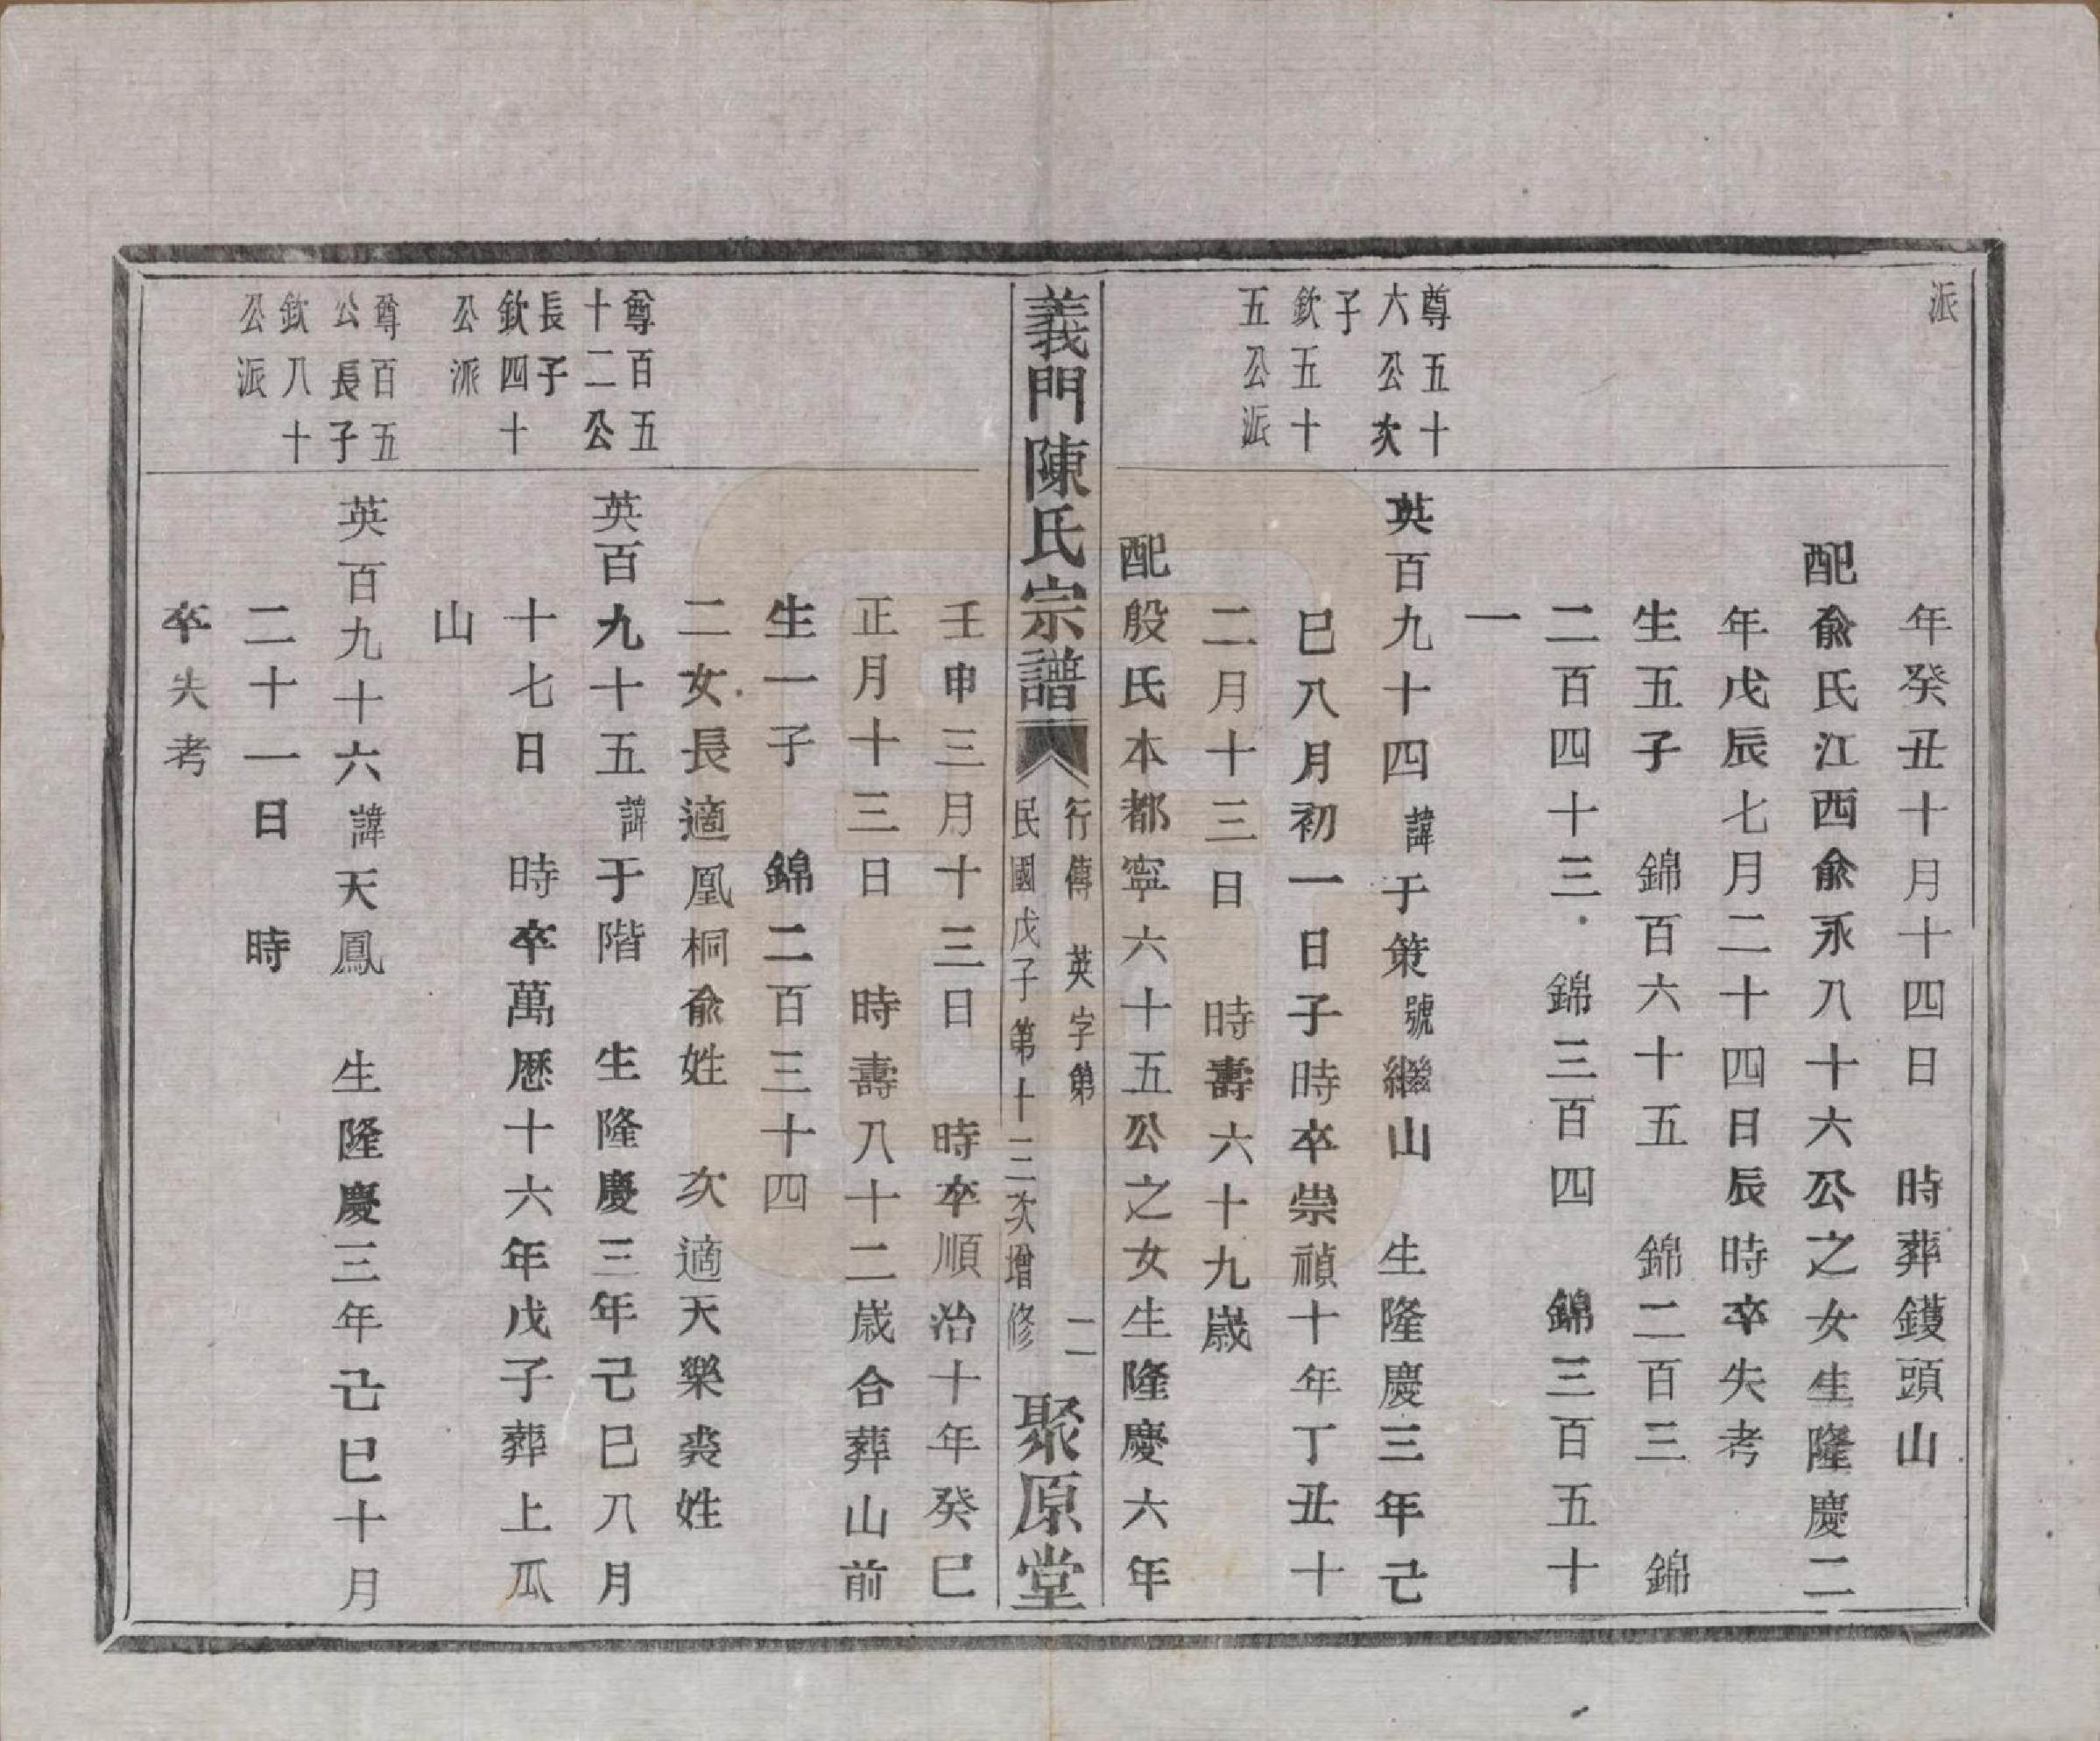 派
年癸丑十月十四日　時葬鑊頭山
配俞氏江西俞永八十六公之女生隆慶二
年戊辰七月二十四日辰時卒失考
生五子　錦百六十五　錦二百三　錦
二百四十三　錦三百四　錦三百五十
一
尊五十
六公次
子
欽五十
五公派
英百九十四諱于策號繼山　生隆慶三年己
巳八月初一日子時卒崇禎十年丁丑十
二月十三日　時壽六十九歲
配殷氏本都寧六十五公之女生隆慶六年
義門陳氏宗譜
行傳　英字第　二
民國戊子第十三次增修
聚原堂
壬申三月十三日　時卒順治十年癸巳
正月十三日　時壽八十二歲合葬山前
生一子　錦二百三十四
二女長適凰桐俞姓　次適天樂裘姓
尊百五
十二公
長子
欽四十
公派
英百九十五諱于階　生隆慶三年己巳八月
十七日　時卒萬歷十六年戊子葬上瓜
山
尊百五
公長子
欽八十
公派
英百九十六諱天鳳　生隆慶三年己巳十月
二十一日　時
卒失考